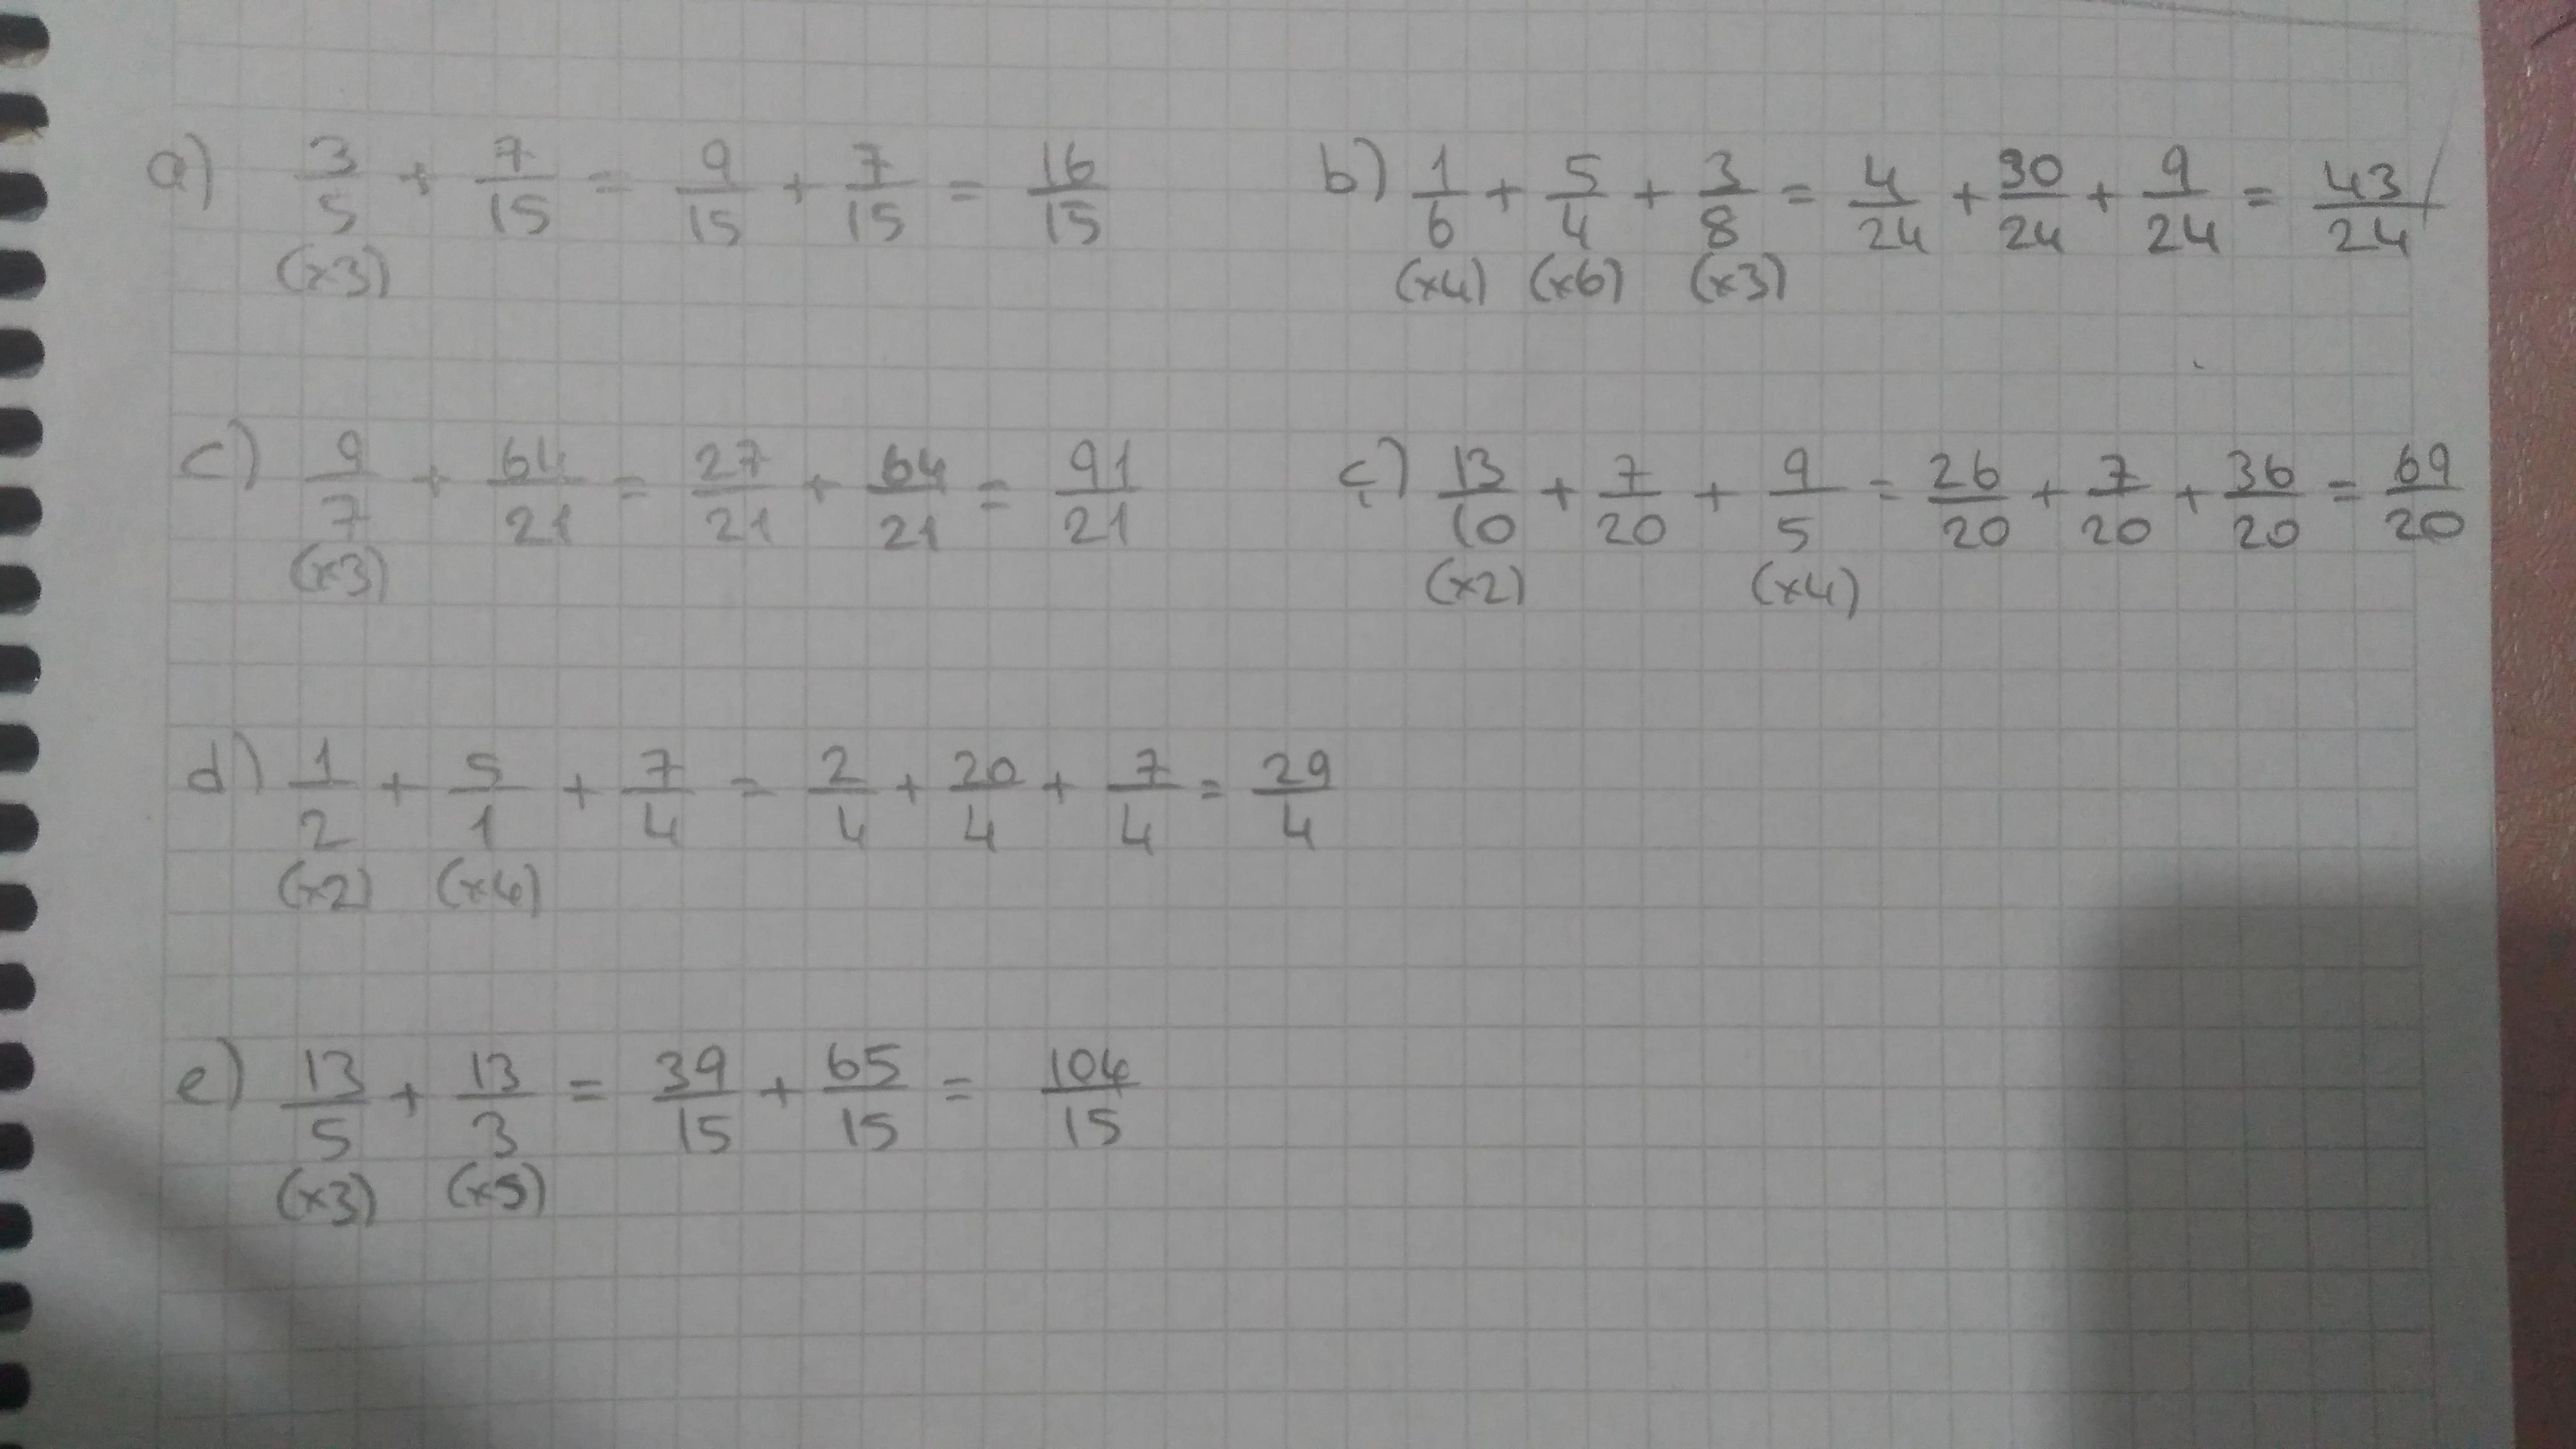 a) 3/5 + 7/15 = 9/15 + 7/15 = 16/15
(x3)
b) 1/6 + 5/4 + 3/8 = 4/24 + 30/24 + 9/24 = 43/24
(x4) (x6) (x3)
c) 9/7 + 64/21 = 27/21 + 64/21 = 91/21
(x3)
ç) 13/10 + 7/20 + 9/5 = 26/20 + 7/20 + 36/20 = 69/20
(x2) (x4)
d) 1/2 + 5/1 + 7/4 = 2/4 + 20/4 + 7/4 = 29/4
(x2) (x4)
e) 13/5 + 13/3 = 39/15 + 65/15 = 104/15
(x3) (x5)